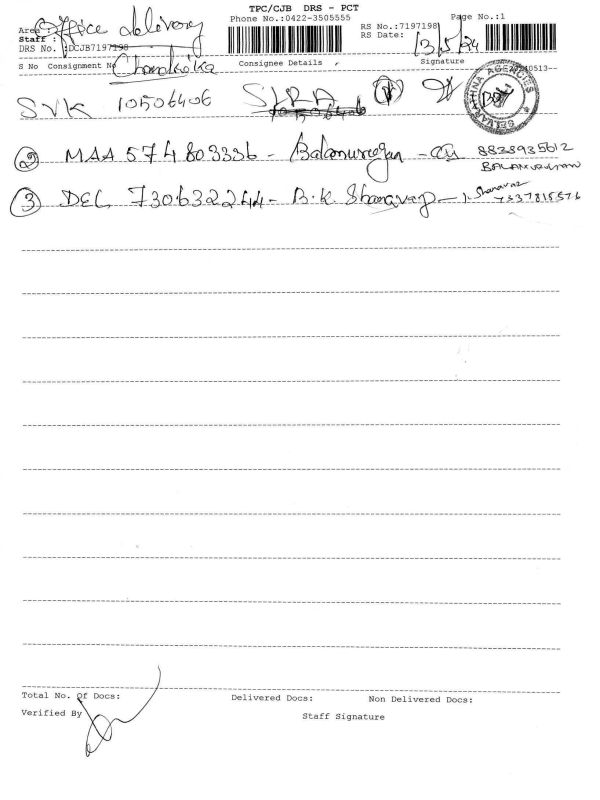 TPC/CJB DRS - PCT
Phone No.:0422-3505555
Page No.:1
Area : Office delivery
RS No.:7197198
Staff :
RS Date: 13/5/24
DRS No. :DCJB7197198
S No Consignment No Consignee Details Signature
Chandrika
SVK 10506406
SELVARATHINA AGENCIES
② MAA 574803336 - Balamurugan 8838935612
BALAMURUGAN
③ DEL 730632244 - B.K. Sharavanan 7337815576
Total No. Of Docs: Delivered Docs: Non Delivered Docs:
Verified By
Staff Signature